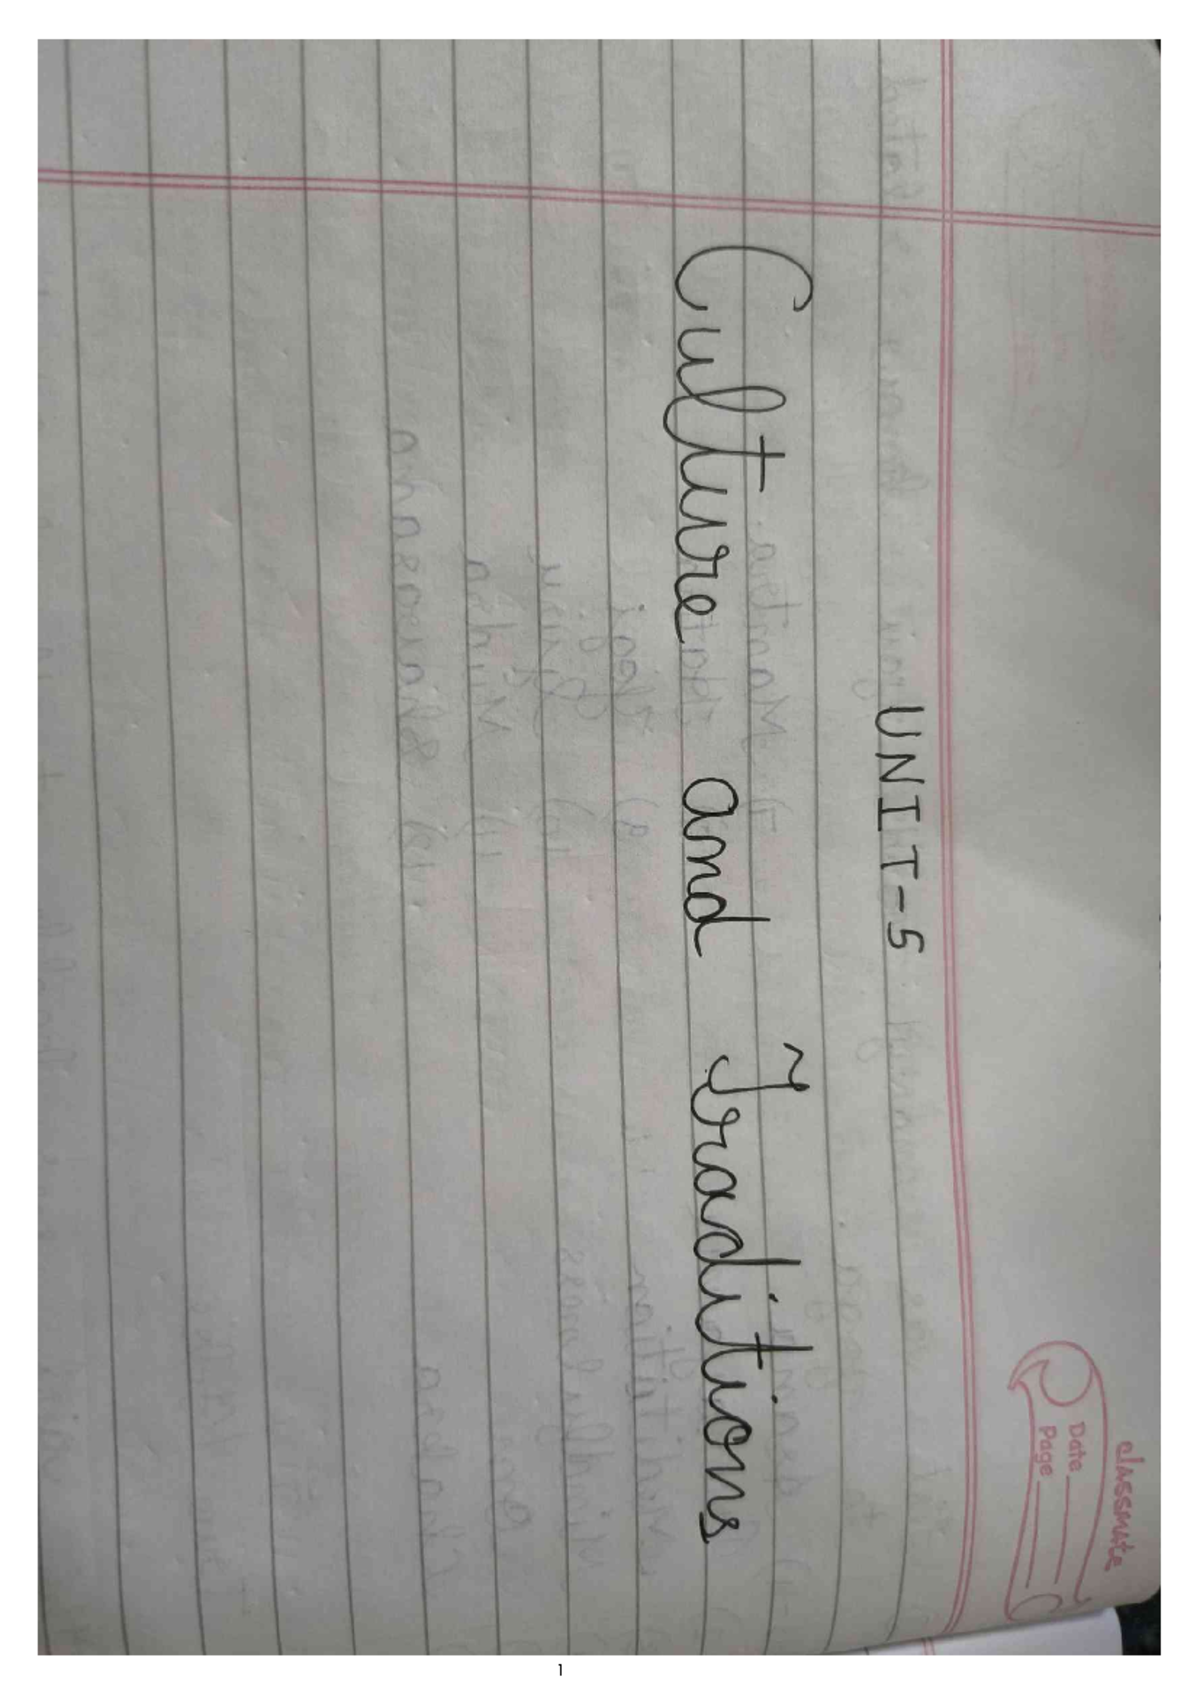 classmate
Date
Page
UNIT-5
Culture and Traditions
1